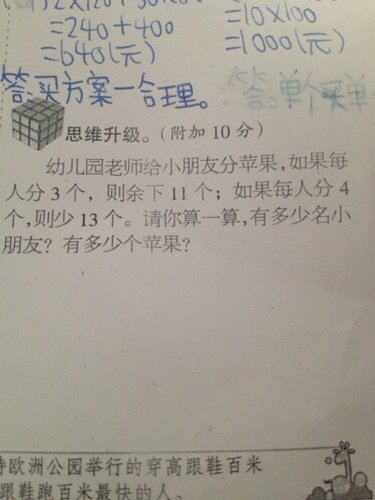 2×120+
=240+400
=10×100
=640(元)
=1000(元)
答:买方案一合理。
答:单个买单
思维升级。(附加10分)
幼儿园老师给小朋友分苹果,如果每
人分3个,则余下11个;如果每人分4
个,则少13个。请你算一算,有多少名小
朋友?有多少个苹果?
欧洲公园举行的穿高跟鞋百米
跟鞋跑百米最快的人。